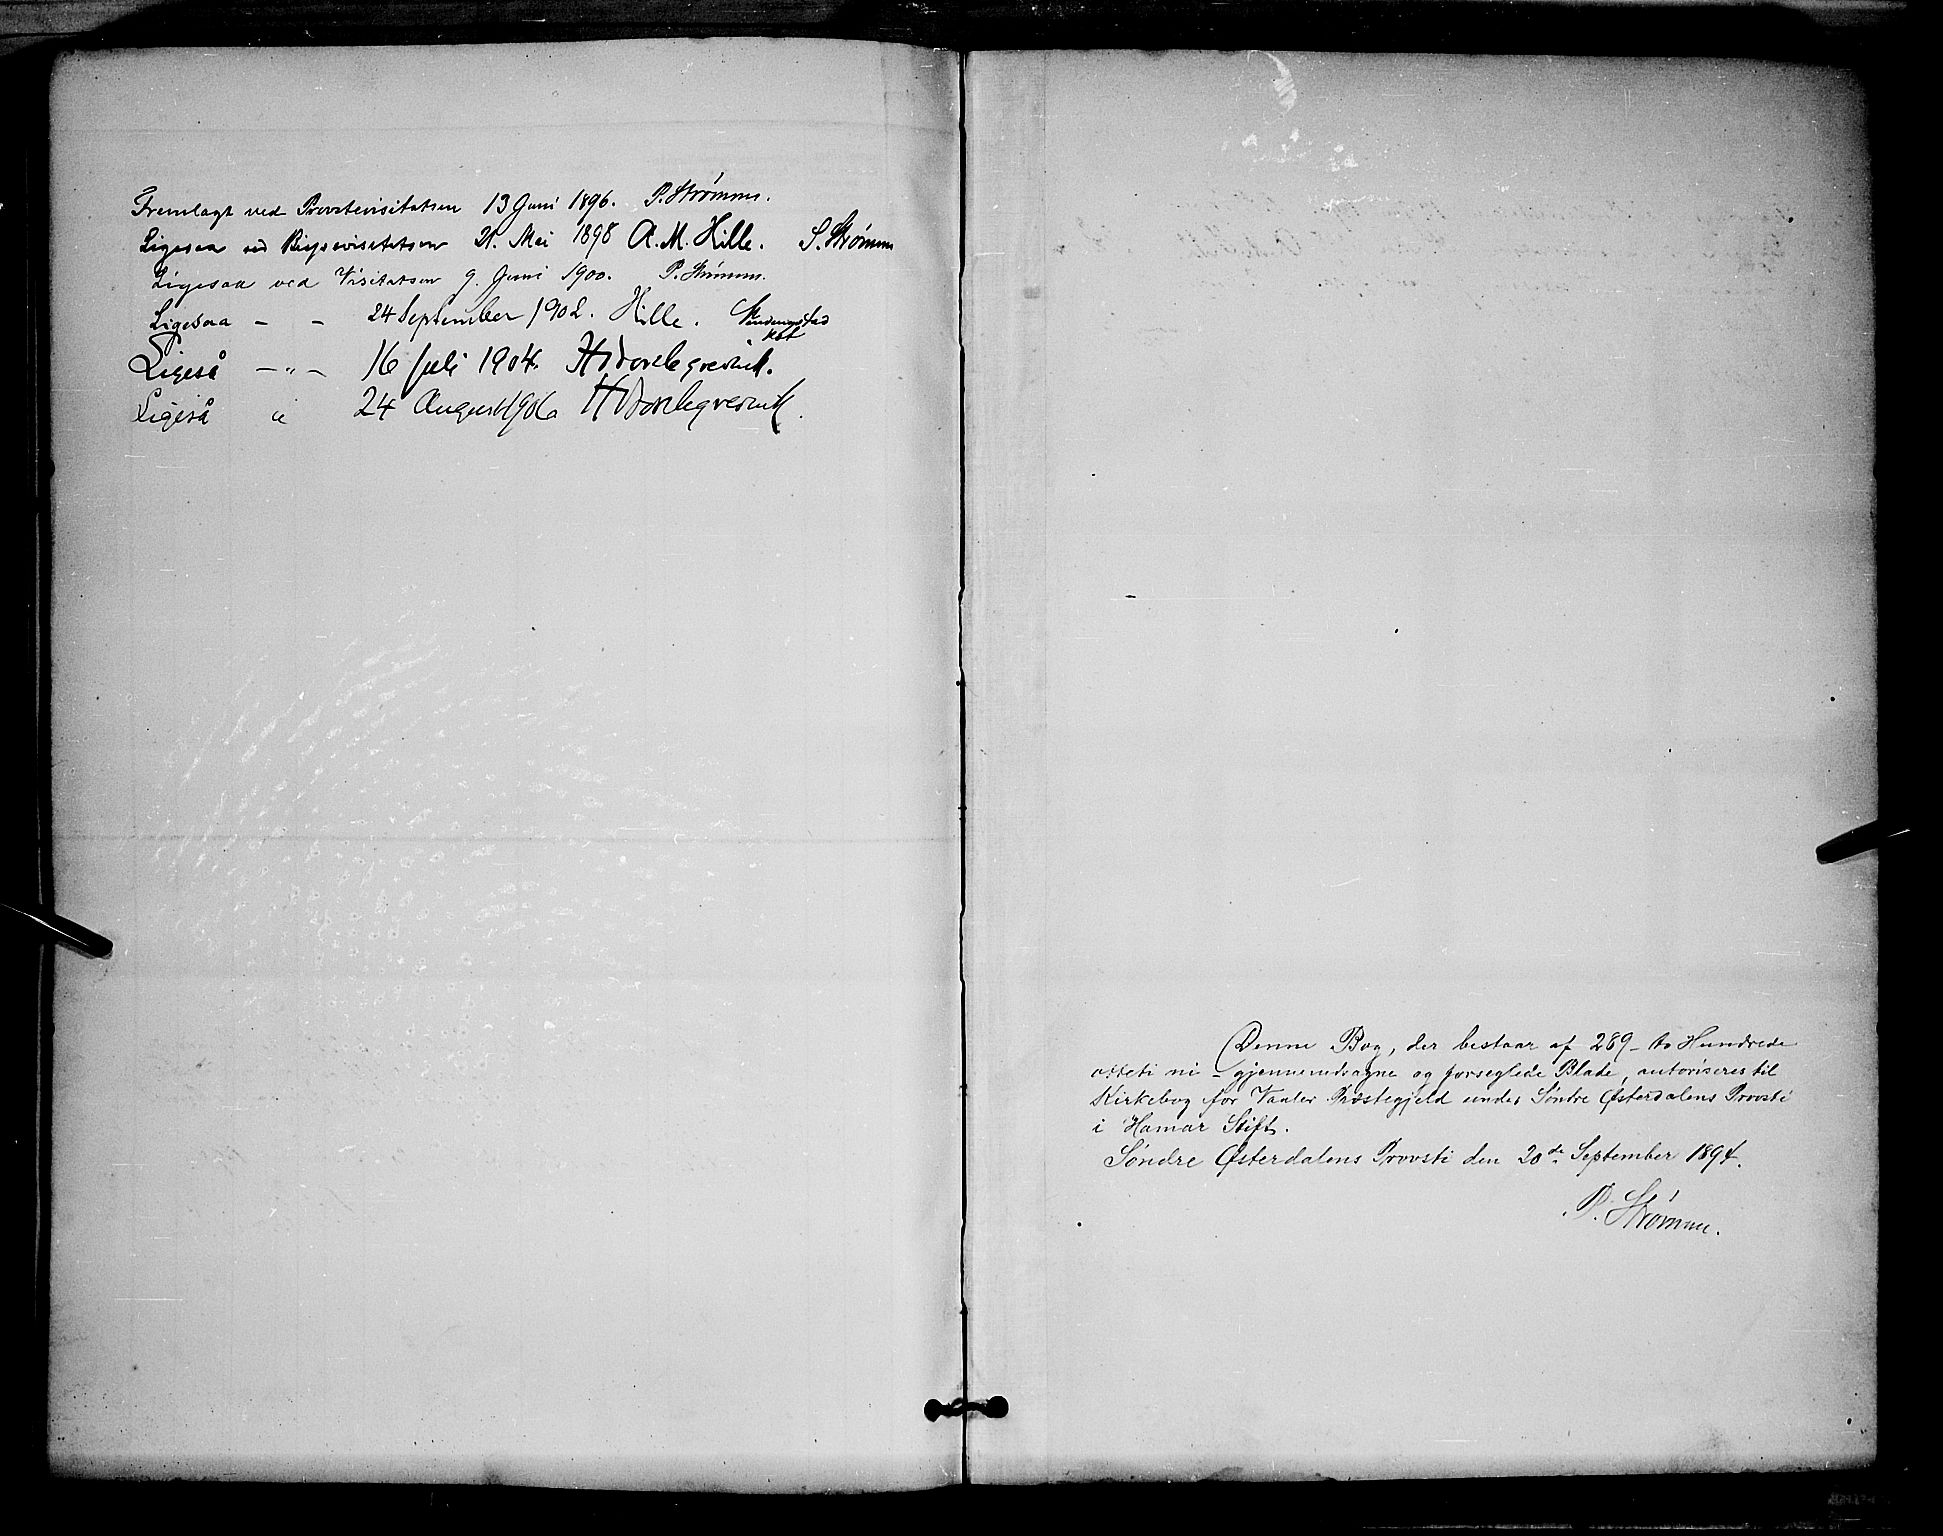 Fremlagt ved Provstevisitatsen 13 Juni 1896. P. Strømme.
Ligesaa ved Bispevisitatsen 21. Mai 1898 A. M. Hille. P. Strømme
Ligesaa ved Visitatsen 9. Juni 1900. P. Strømme.
Ligesaa - - 24 September 1902. Hille.
Ligeså -"- 16 juli 1904.
Ligeså " 24 August 1906
Denne Bog, der bestaar af 289 - to Hundrede
otteti ni - gjennemdragne og forseglede Blade, autoriseres til
Kirkebog for Vaaler Præstegjeld under Søndre Østerdalens Provsti
i Hamar Stift.
Søndre Østerdalens Provsti den 20de September 1894.
P. Strømme.